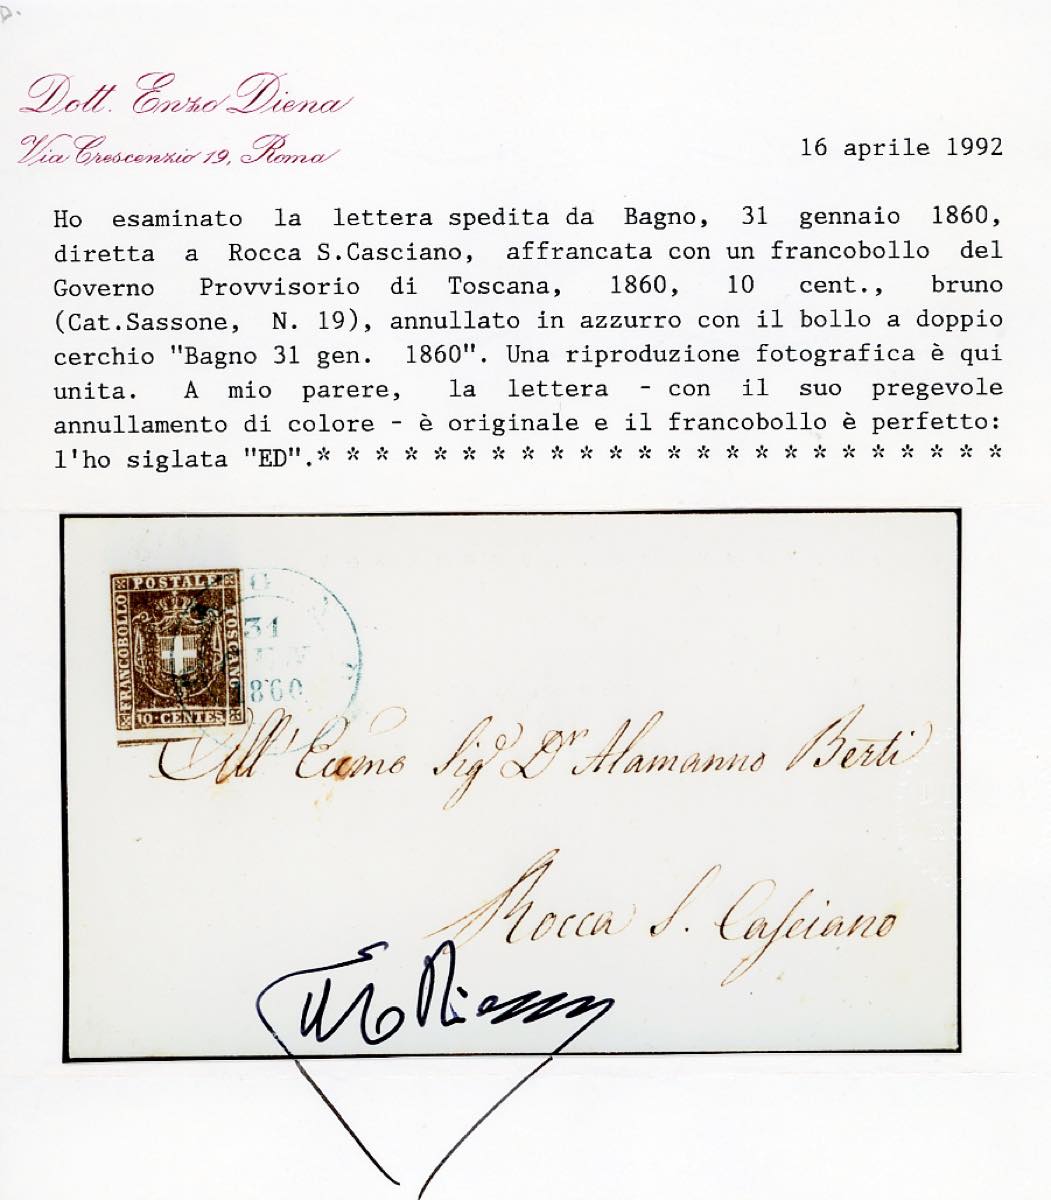 Dott. Enzo Diena
Via Crescenzio 19, Roma
16 aprile 1992
Ho esaminato la lettera spedita da Bagno, 31 gennaio 1860,
diretta a Rocca S.Casciano, affrancata con un francobollo del
Governo Provvisorio di Toscana, 1860, 10 cent., bruno
(Cat.Sassone, N. 19), annullato in azzurro con il bollo a doppio
cerchio "Bagno 31 gen. 1860". Una riproduzione fotografica è qui
unita. A mio parere, la lettera - con il suo pregevole
annullamento di colore - è originale e il francobollo è perfetto:
l'ho siglata "ED".* * * * * * * * * * * * * * * * * * * * * * * *
POSTALE
FRANCOBOLLO
TOSCANO
10·CENTES
31
1860
All' Eccmo Sigr Dr Alamanno Berti
Rocca S. Casciano